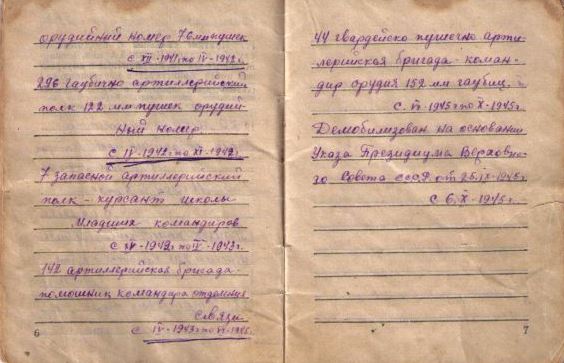 орудийный номер 76 мм пушек
с XII-1941г по IV-1942г.
296 гаубично артиллерийский
полк 122 мм пушек орудий-
ный номер
с IV-1942г по XI-1942г.
7 запасной артиллерийский
полк - курсант школы
младших командиров
с XI-1942г по IV-1943г.
142 артиллерийская бригада -
помошник командира отделения
связи
с IV-1943г по VI-1945г.
6
44 гвардейско пушечно арти-
лерийская бригада - коман-
дир орудия 152 мм гаубиц.
с VI-1945г по X-1945г.
Демобилизован на основании
Указа Президиума Верховно-
го Совета СССР от 25.IX-1945г.
с 6.X-1945г.
7